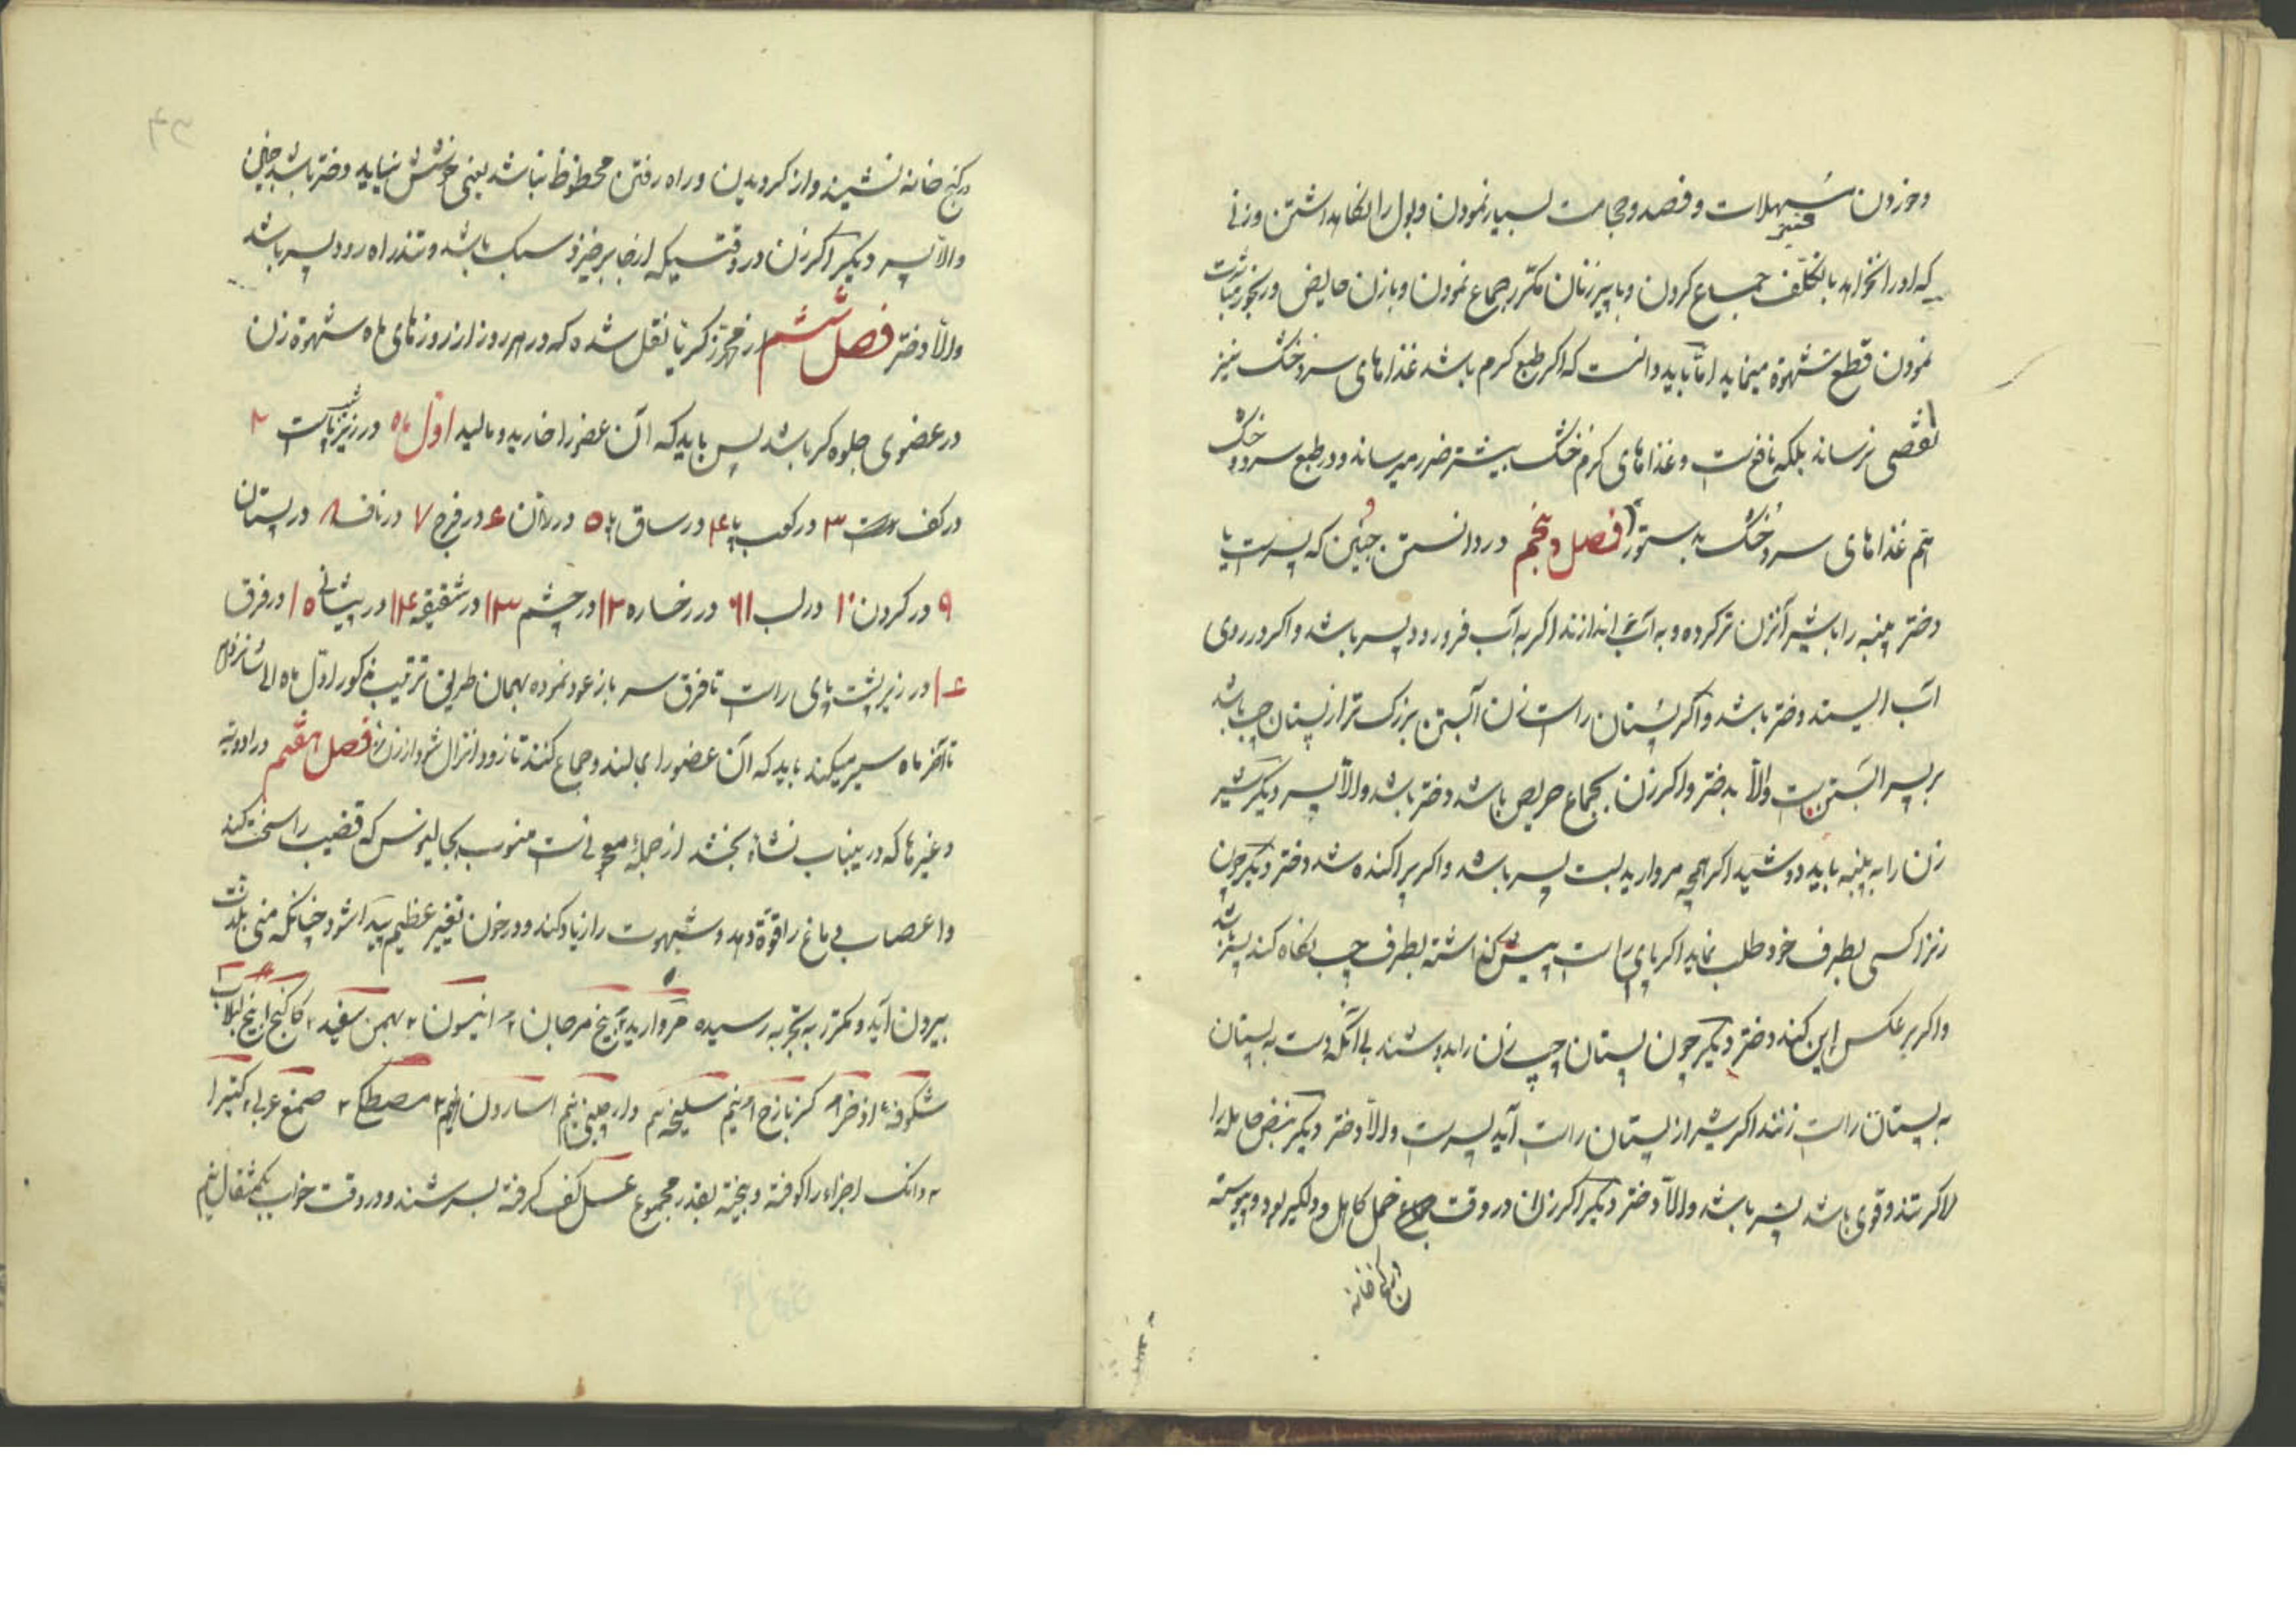 وخوردن مسهلات و فصد و حجامت بسیار نمودن و بول را نکاهداشتن و زنی
که او را نخواهد بتکلف جماع کردن و با پیر زنان مکرر جماع نمودن و با زن حایض و رنجور مباشرت
نمودن قطع شهوة مینماید اما باید دانست که اکر طبع کرم باشد غذاهای سرد خشک نیز
نقصی نرساند بلکه نافع است و غذاهای کرم خشک بیشتر ضرر میرساند و در طبع سرد و خشک
هم غذاهای سرد و خشک بدستور فصل پنجم در دانستن جنین که پسر است یا
دختر پنبه را با شیر آنزن تر کرده و به آب اندازند اکر به آب فرو رود پسر باشد و اکر در روی
آب ایستد دختر باشد و اکر پستان راست زن آبستن بزرک تر از پستان چپ باشد
بپسر آبستن است والّا بدختر و اکر زن بجماع حریص باشد دختر باشد والّا پسر دیکر شیر
زن را به پنبه باید دوشید اکر همچه مروارید بست پسر باشد و اکر پراکنده شد دختر دیکر چون
زنرا کسی بطرف خود طلب نماید اکر پای راست پیش کذاشته بطرف چپ نکاه کند پسر باشد
و اکر بر عکس این کند دختر دیکر چون پستان چپ زن را بدوشند بی آنکه دست به پستان
به پستان راست زنند اکر شیر از پستان راست آید پسر است والّا دختر دیکر نبض حامله را
اکر تند و قوی باشد پسر باشد والّا دختر دیکر اکر زن در وقت حمل کاهل و دلکیر بود و پیوسته
در کنج خانه
در کنج خانه نشیند و از کردیدن و راه رفتن محظوظ نباشد یعنی خوشش نیاید دختر باشد جنین
والّا پسر دیکر اکر زن در وقتیکه از جا برخیزد سبک باشد و تند راه رود پسر باشد
والّا دختر فصل ششم از محمد زکریا نقل شده که در هر روز از روزهای ماه شهوة زن
در عضوی جلوه کر باشد پس باید که آن عضو را خارید و مالید اول ماه در زیر پاست ۲
در کف دست ۳ در کعب پا ۴ در ساق پا ۵ در ران ۶ در فرج ۷ در ناف ۸ در پستان
۹ در کردن ۱۰ در لب ۱۱ در رخساره ۱۲ در چشم ۱۳ در شقیقه ۱۴ در پیشانی ۱۵ در فرق
۱۶ در زیر پشت پای راست تا فرق سر باز عود نموده بهمان طریق ترتیب مذکور اول ماه الی شانزدهم
تا آخر ماه سیر میکند باید که آن عضو را بمالند و جماع کنند تا زود انزال شود از زن فصل هفتم در ادویه
و غیرها که در ینباب نشاة بخشد از جمله معجونیست منسوب بجالینوس که قضیب را سخت کند
و اعصاب دماغ را قوة دهد و شهوت را زیاد کند و در خون تغییر عظیم پیدا شود چنانکه منی بلذت
بیرون آید و مکرر به تجربه رسیده مروارید بیخ مرجان ۲ انیسون ۲ بهمن سفید ۲ کاکنج بیخ لبلاب
شکوفه اذخر کزمازج نیم سلیخه نیم دارچینی نیم اسارون نیم مصطکی ۲ صمغ عربی کتیرا
دانک اجزاء را کوفته و بیخته بقدر مجموع عسل کف کرفته بسرشند و در وقت خواب یکمثقال نیم